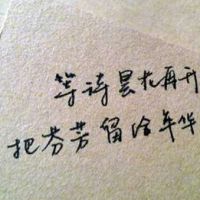 等诗昙花再开
把芬芳留给年华